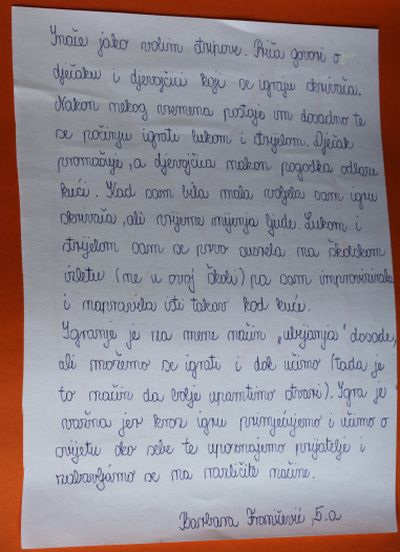 Inače jako volim stripove. Priča govori o
dječaku i djevojčici koji se igraju skrivača.
Nakon nekog vremena postaje im dosadno te
se počinju igrati lukom i strijelom. Dječak
promašuje, a djevojčica nakon pogodka odlazi
kući. Kad sam bila mala voljela sam igru
skrivača, ali vrijeme mijenja ljude. Lukom i
strijelom sam se prvo susrela na školskom
izletu (ne u ovoj školi) pa sam improvizirala
i napravila isti takav kod kuće.
Igranje je za mene način „ubijanja“ dosade,
ali možemo se igrati i dok učimo (tada je
to način da bolje upamtimo stvari). Igra je
važna jer kroz igru primjećujemo i učimo o
svijetu oko sebe te upoznajemo prijatelje i
zabavljamo se na različite načine.
Barbara Franičević, 5.a